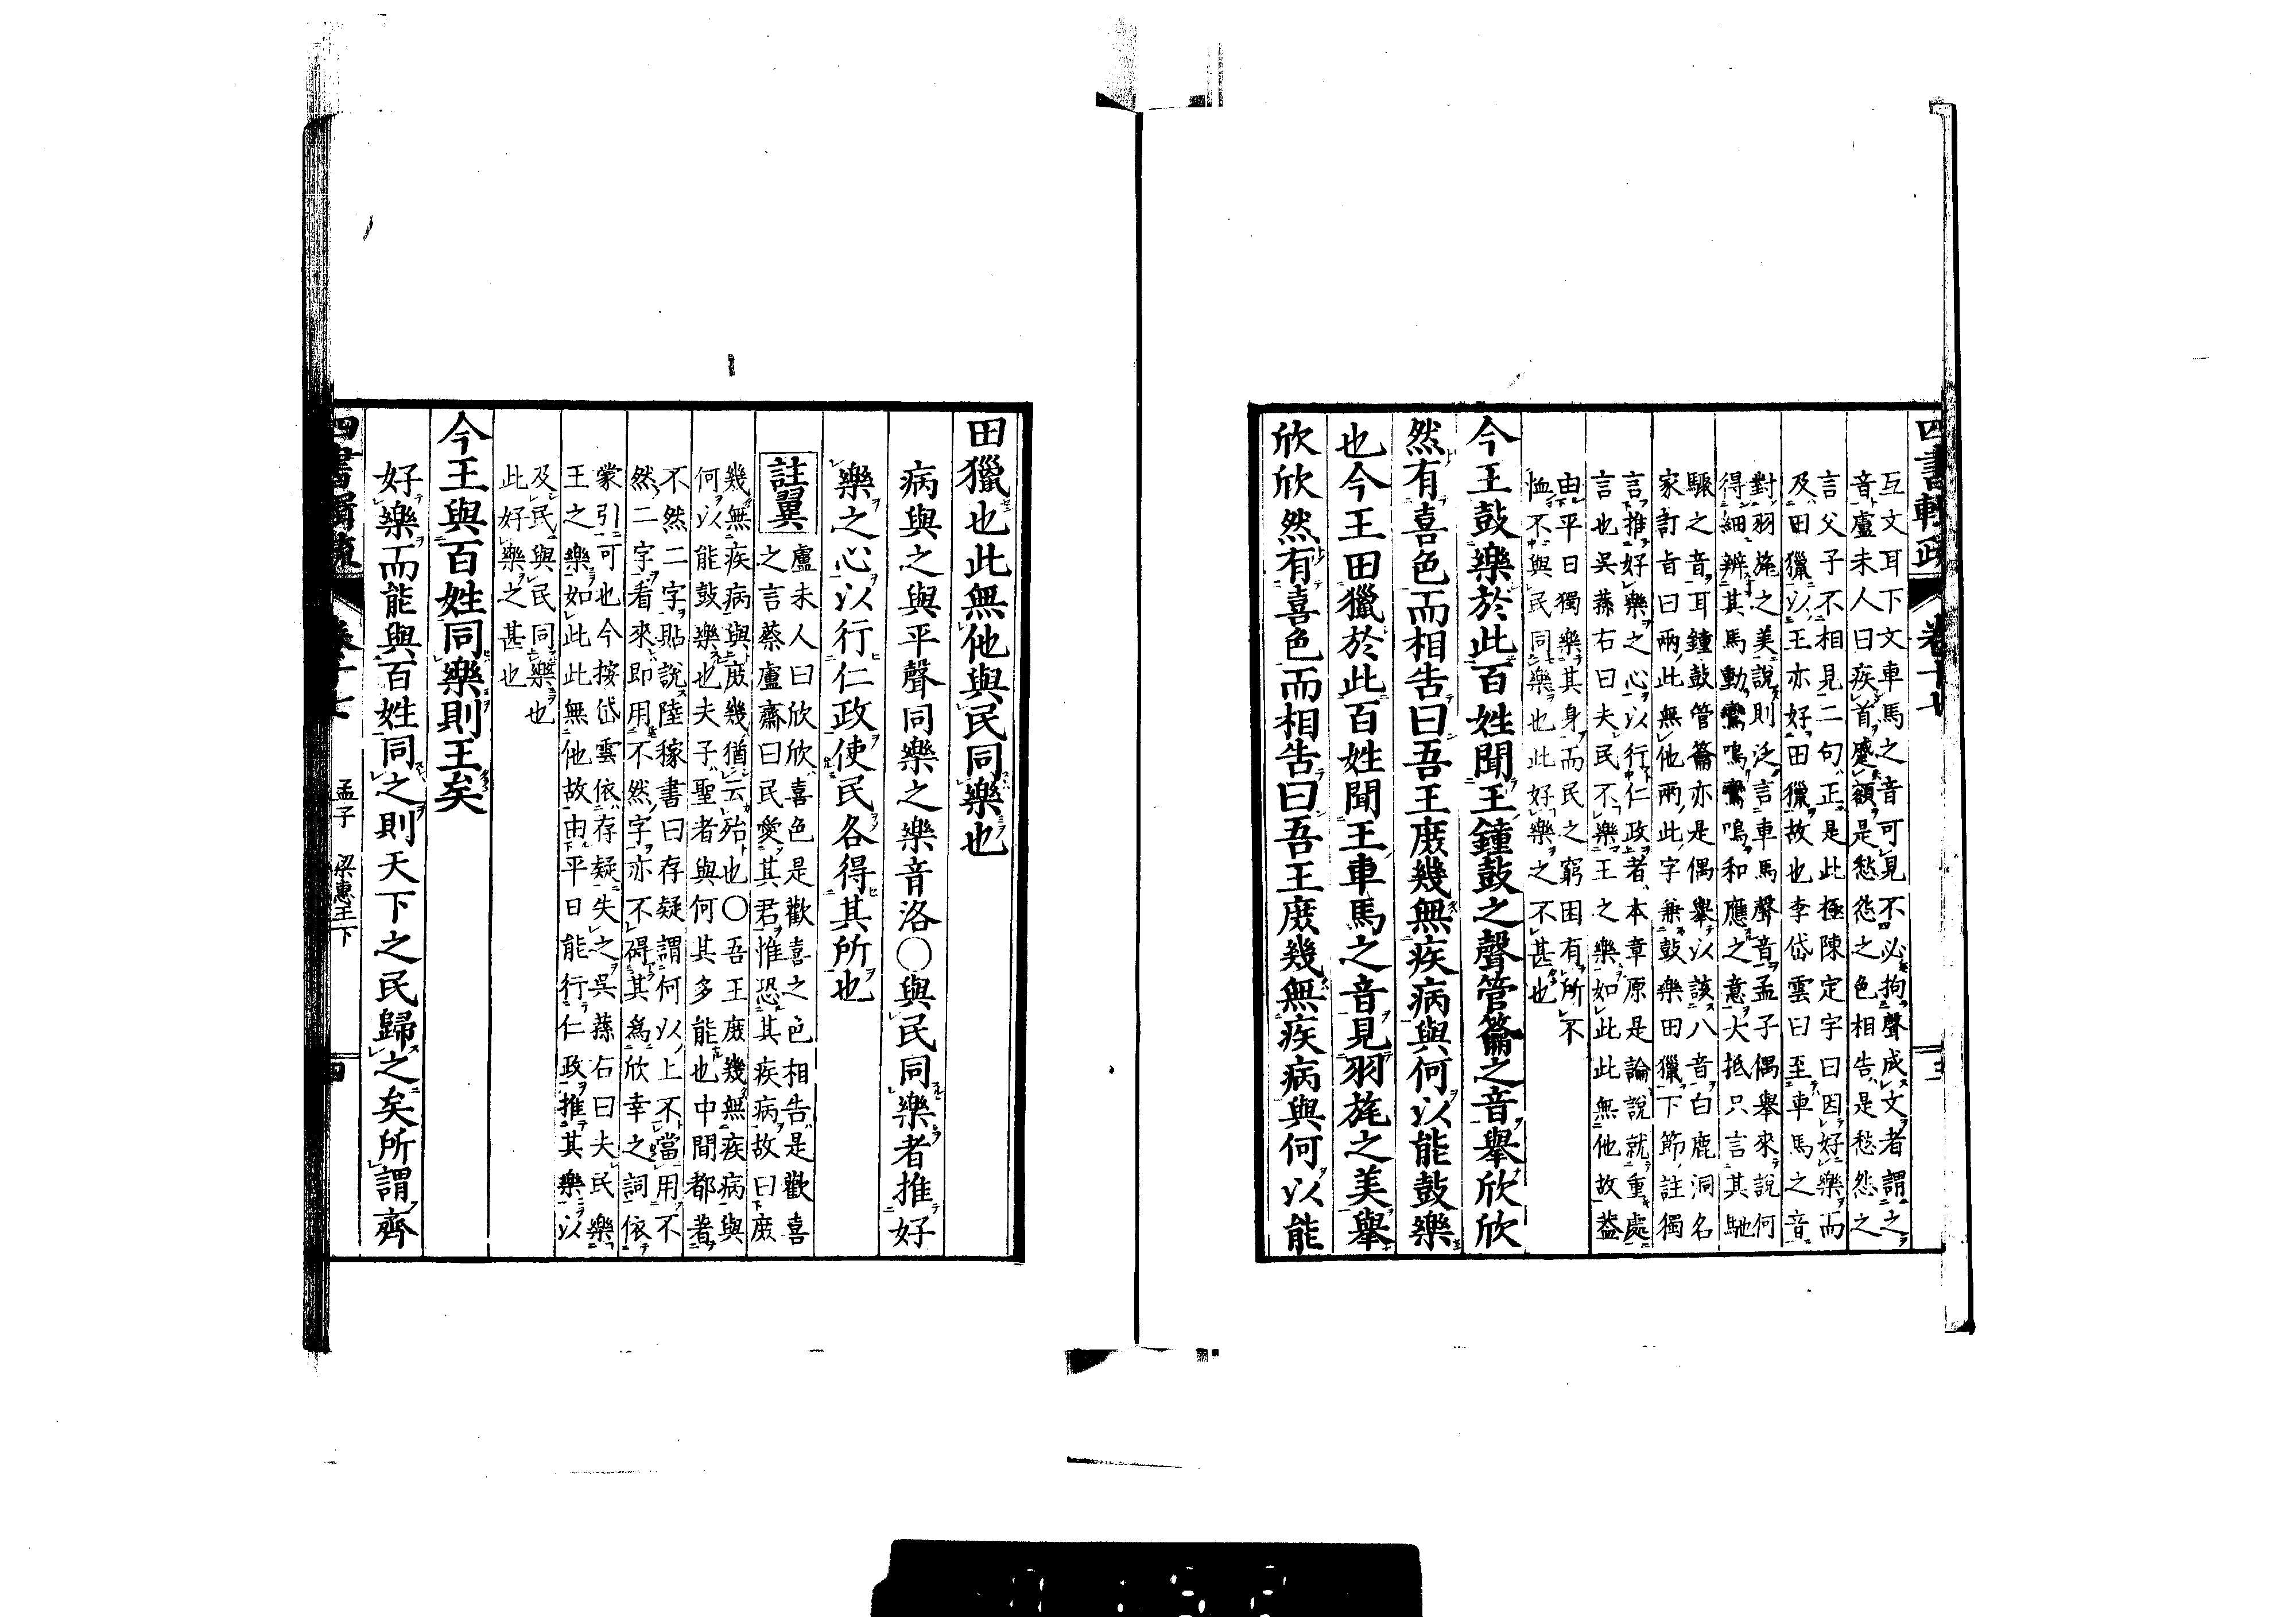 四書輯疏 卷十七
互文耳下文車馬之音可見不必拘聲成文者謂之
音盧未人曰疾首蹙額是愁怨之色相告是愁怨之
言父子不相見二句正是此極陳定宇曰因好樂而
及田獵以王亦好田獵故也李岱雲曰至車馬之音
對羽旄之美說則泛言車馬聲音孟子偶舉來說何
得細辨其馬動鸞鳴鸞鳴和應之意大抵只言其馳
驅之音耳鐘鼓管籥亦是偶舉以該八音白鹿洞名
家訂旨曰兩此無他兩此字兼鼓樂田獵下節註獨
言推好樂之心以行仁政者本章原是論說就重處
言也吳蓀右曰夫民不樂王之樂如此此無他故蓋
由平日獨樂其身而民之窮困有所不
恤不與民同樂也此好樂之不甚也
今王鼓樂於此百姓聞王鐘鼓之聲管籥之音舉欣欣
然有喜色而相告曰吾王庶幾無疾病與何以能鼓樂
也今王田獵於此百姓聞王車馬之音見羽旄之美舉
欣欣然有喜色而相告曰吾王庶幾無疾病與何以能
田獵也此無他與民同樂也
病與之與平聲同樂之樂音洛〇與民同樂者推好
樂之心以行仁政使民各得其所也
註翼
盧未人曰欣欣喜色是歡喜之色相告是歡喜
之言蔡盧齋曰民愛其君惟恐其疾病故曰庶
幾無疾病與庶幾猶云殆也〇吾王庶幾無疾病與
何以能鼓樂也夫子聖者與何其多能也中間都著
不然二字貼說陸稼書曰存疑謂何以上不當用不
然二字看來即用不然字亦不碍其爲欣幸之詞依
蒙引可也今按岱雲依存疑失之吳蓀右曰夫民樂
王之樂如此此無他故由平日能行仁政推其樂以
及民與民同樂也
此好樂之甚也
今王與百姓同樂則王矣
好樂而能與百姓同之則天下之民歸之矣所謂齊
四書輯疏 卷十七 孟子 梁惠王下 四